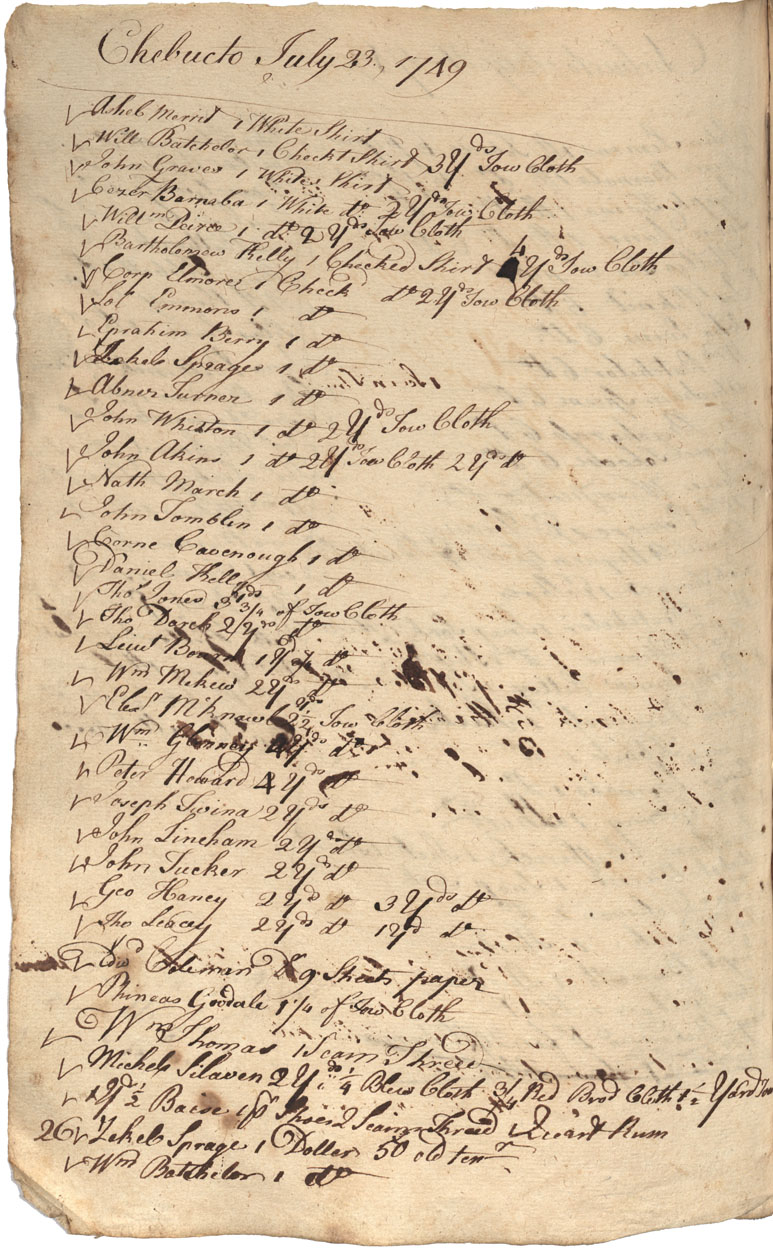 Chebucto July 23, 1749
Ashel Merrit 1 White Shirt
Will Batchelor 1 Checkt Shirt 3 Yds Tow Cloth
John Graves 1 White Shirt
Cozer Barnaba 1 White do 2 Yds Tow Cloth
Willm Peirce 1 do 2 Yds Tow Cloth
Bartholomew Kelly 1 Checked Shirt 4 Yds Tow Cloth
Corp Elmores 1 Check do 2 Yds Tow Cloth
Sol Emmons 1 do
Ephrahim Berry 1 do
Zekel Sprage 1 do
Abner Turner 1 do
John Whiston 1 do 2 Yds Tow Cloth
John Akins 1 do 2 Yds Tow Cloth 2 Yds do
Nath March 1 do
John Tomblin 1 do
Corne Cavenough 1 do
Daniel Kelly 1 do
Thos Jones 3 Yds 3/4 of Tow Cloth
Tho Dorch 2 1/2 Yds do
Lieut 1 Yd do
Wm Mckew 2 Yds do
Eleas Mcknew 2 1/2 Yds Tow Cloth
Wm Yds do
Peter Howard 4 Yds do
Joseph Twina 2 Yds do
John Lineham 2 Yds do
John Tucker 2 Yds do
Geo Haney 2 Yd do 3 Yds do
Tho Leacey 2 Yds do 1 Yd do
Edwd Coleman Dr 9 Sheets paper
Phineas Goodale 1 1/4 of Tow Cloth
Wm Thomas 1 Seam Thred
Michel Slaven 2 Yds 1/4 Blew Cloth 3/4 Red Brod Cloth 1 1/2 Yard
1 Yd 1/2 Baise 1 pr Shoes 2 Seam Thread Quart Rum
26 Zekel Sprage 1 Doller 50 old tenr
Wm Batchelor 1 do